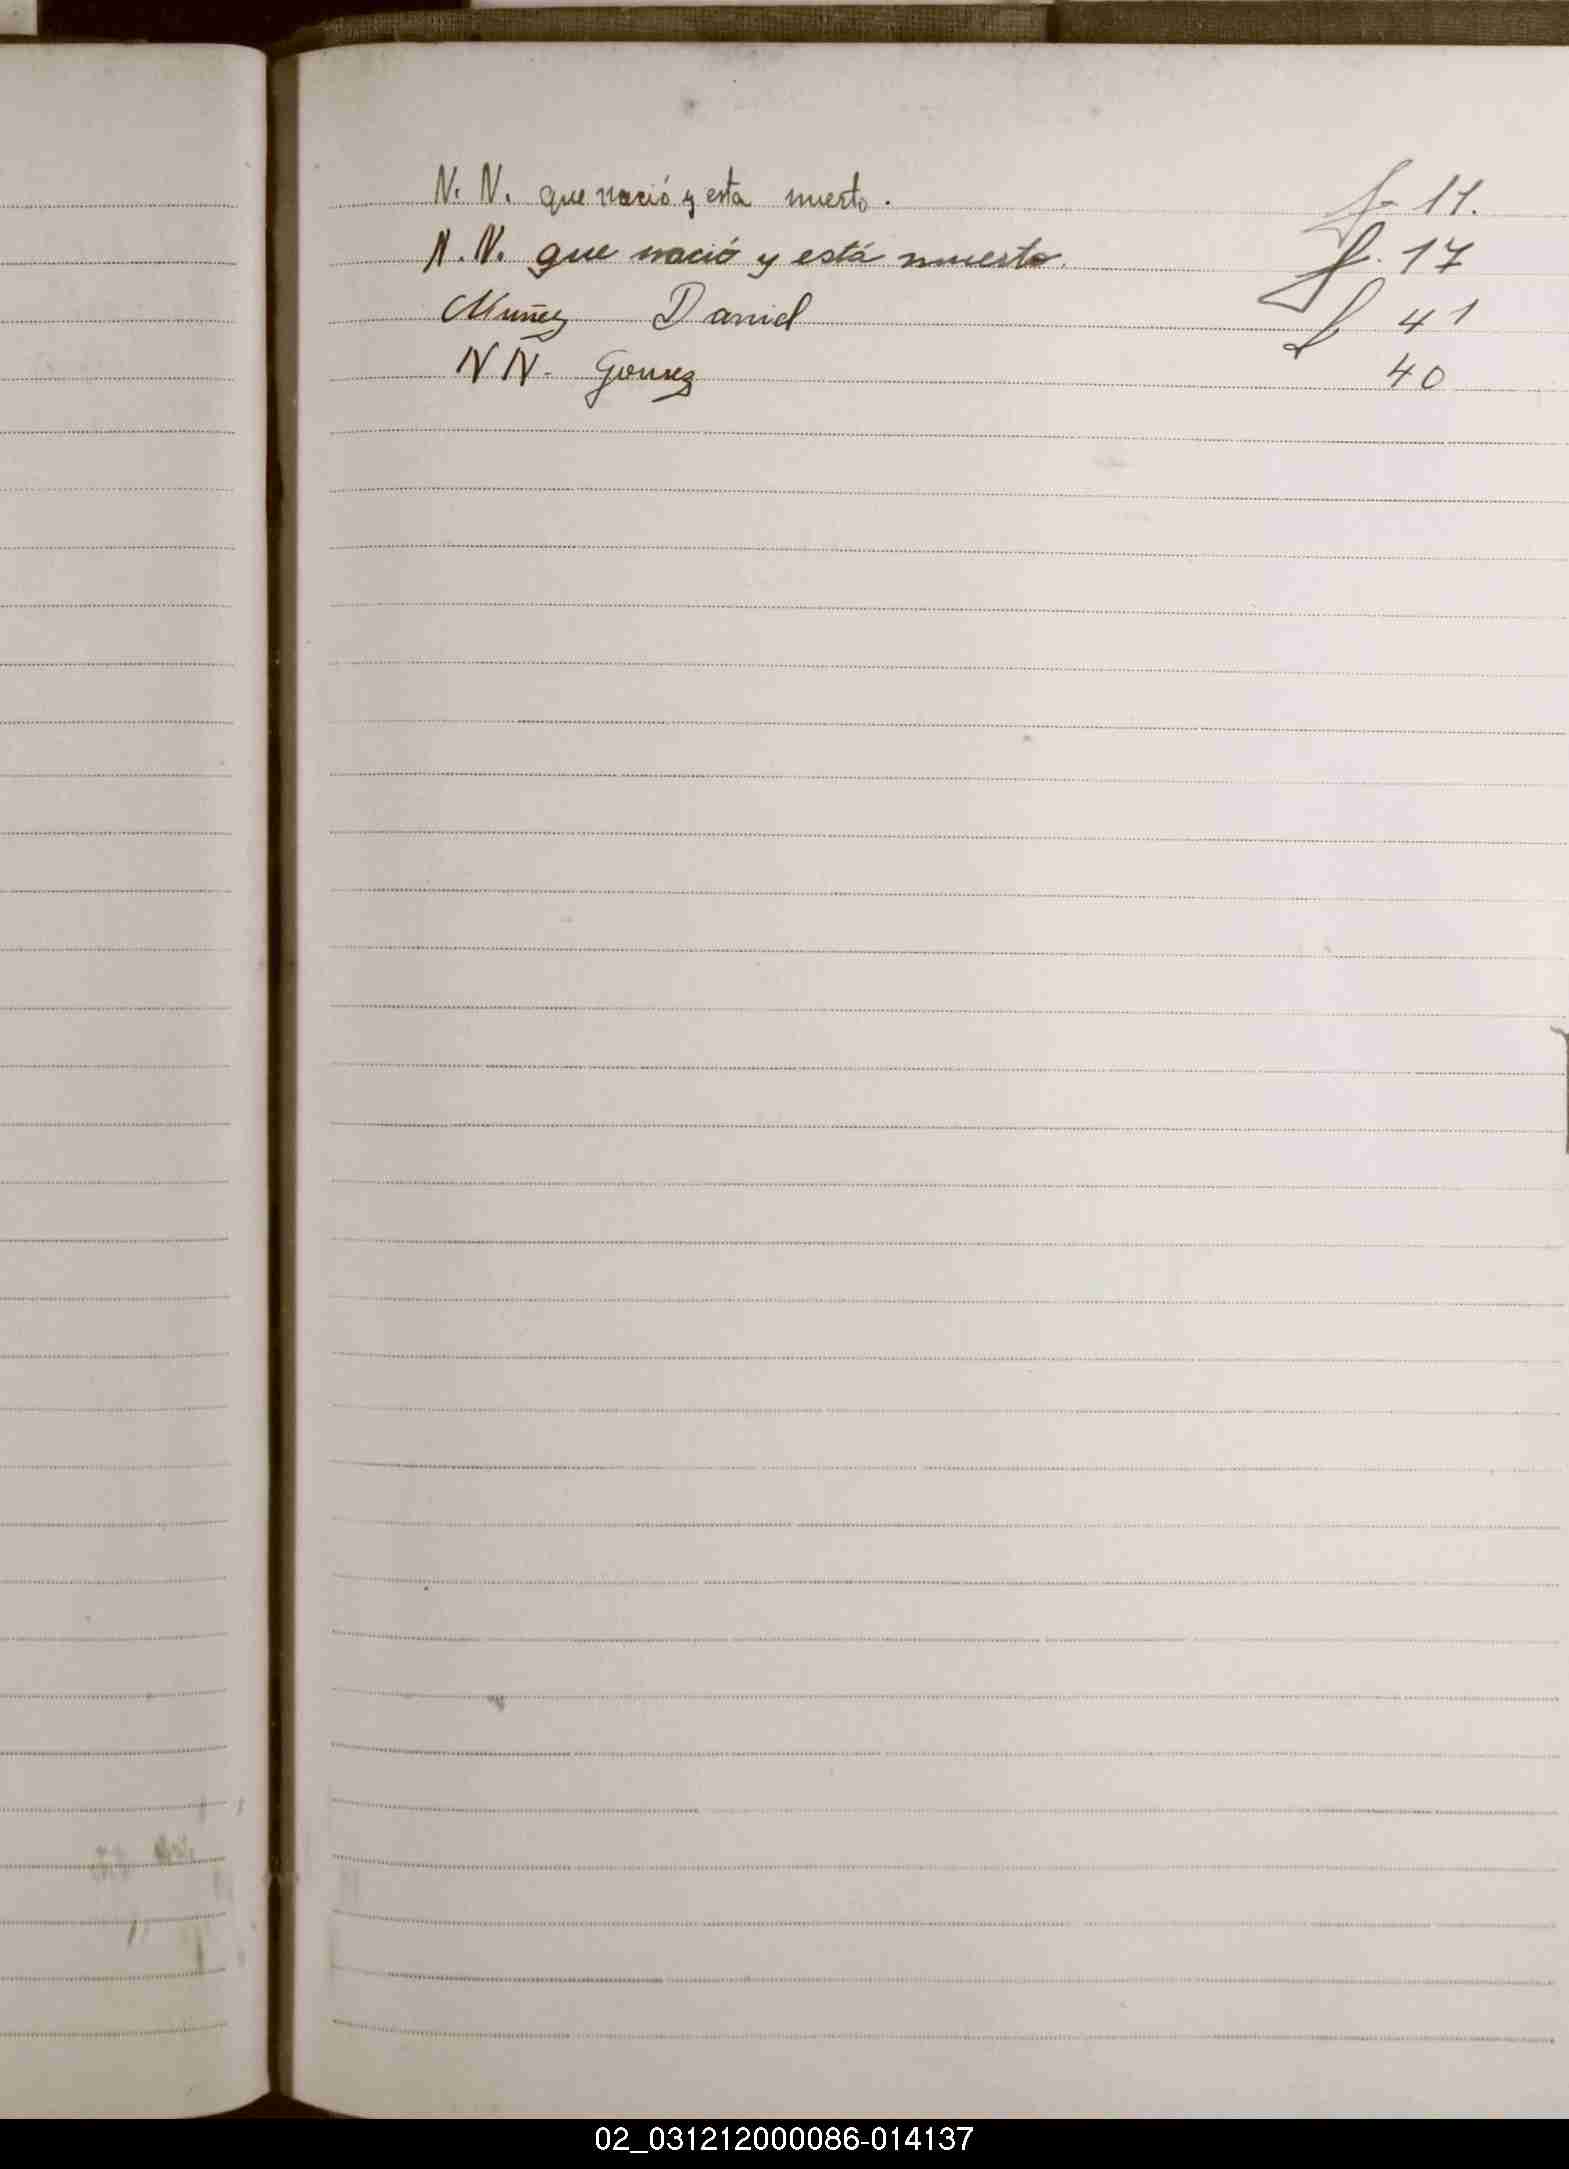 N. N. que nació y esta muerto. f- 11.
N. N. que nació y está muerto. f. 17
Muñez Daniel f 41
N N. Gomez 40
02_031212000086-014137